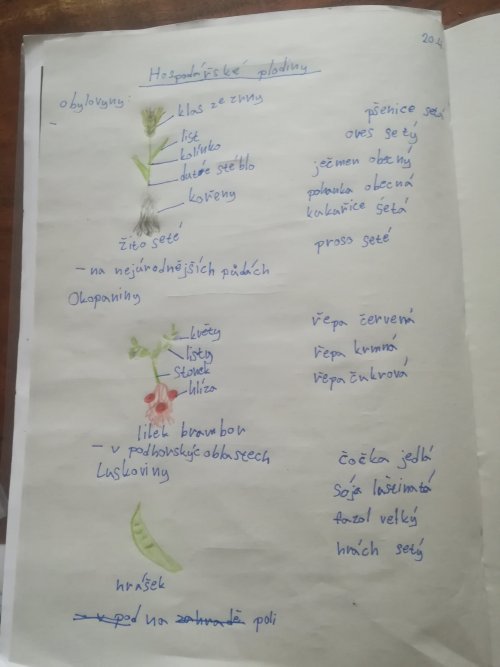 20.4
Hospodářské plodiny
obylovyny:
-
klas ze zrny
list
kolínko
duté stéblo
kořeny
žito seté
pšenice setá
oves setý
ječmen obecný
pohanka obecná
kukařice šetá
proso seté
- na nejúrodnějších půdách
Okopaniny
květy
listy
stonek
hlíza
řepa červená
řepa krmná
řepa čukrová
lilek brambor
- v podhorskýc oblastech
Luskoviny
čočka jedlá
Sója luštinatá
fazol velký
hrách setý
hrášek
- v pod na zahradě poli